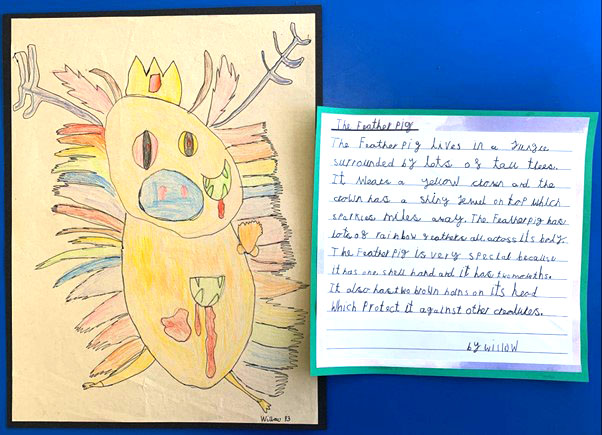 The Feather Pig
The Feather pig lives in a Jungle
surrounded by lots of tall trees.
It wears a yellow crown and the
crown has a shiny Jewel on top which
sparkles miles away. The Feather pig has
lots of rainbow feathers all across its body.
The Feather pig is very special because
it has one shell hand and it has two mouths.
It also has two brown horns on its head
which protect it against other creatures.
by willow
Willow